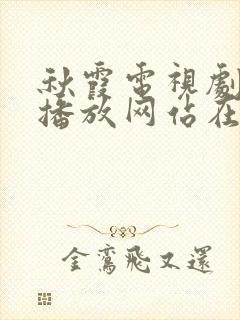 秋霞電視劇
播放网佔在
金鸞飛又還